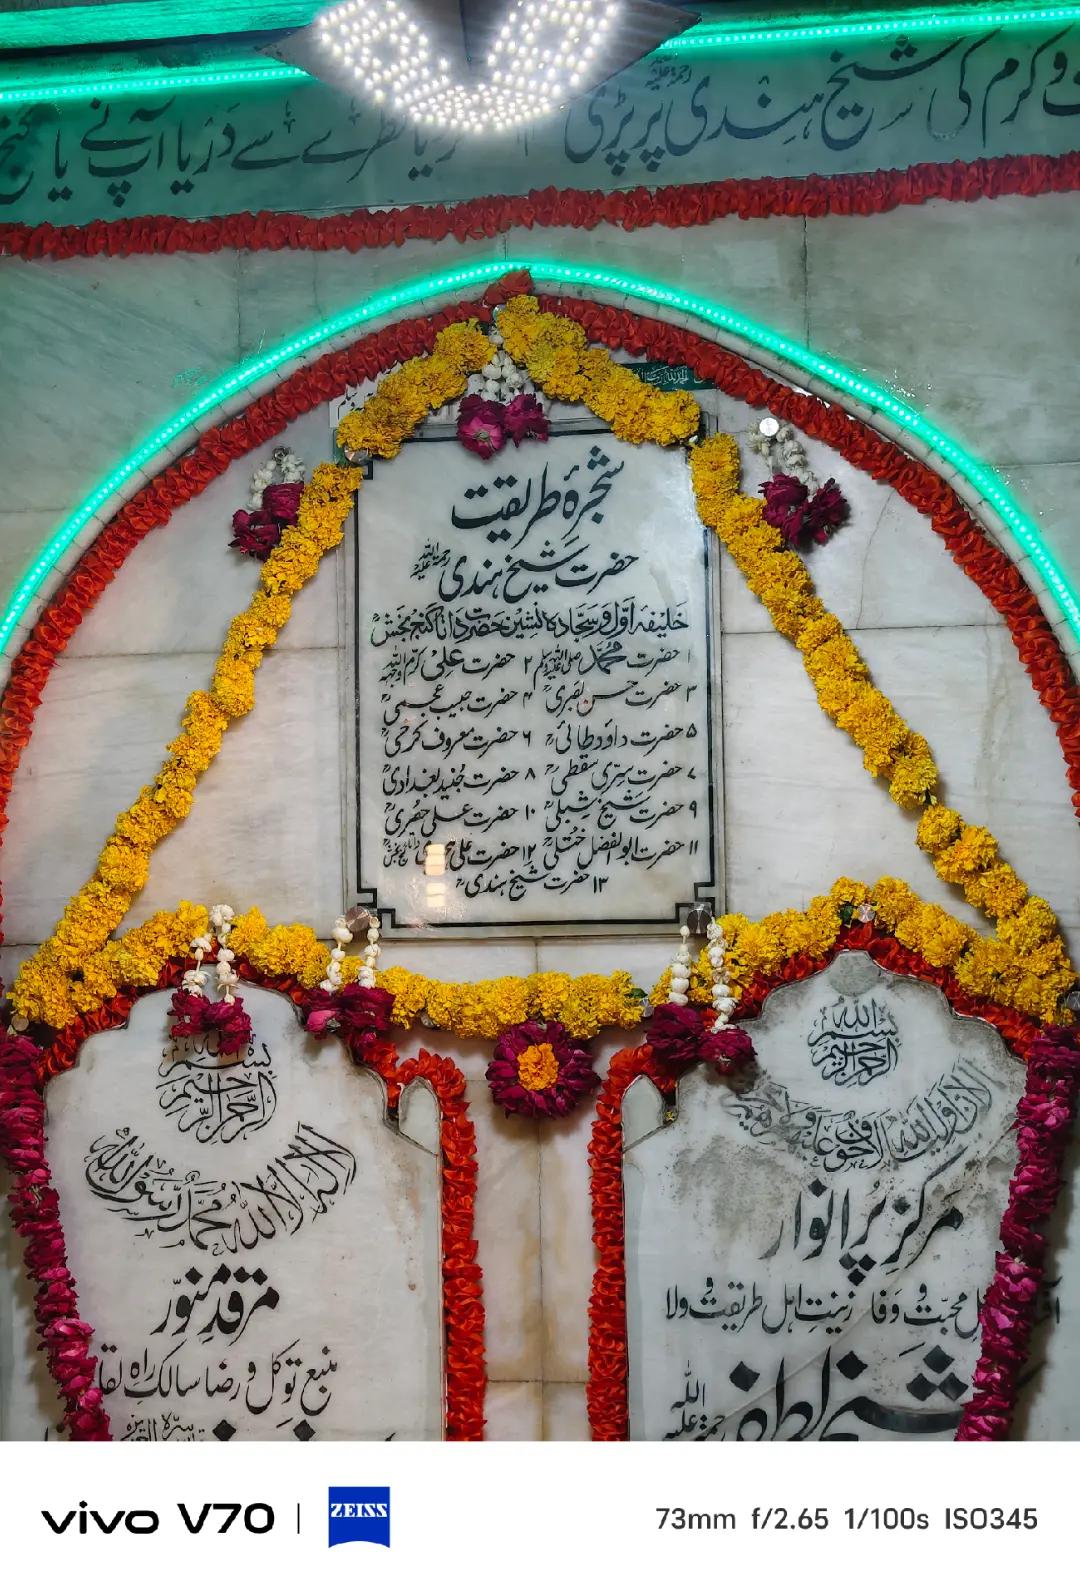 و کرم کی شیخ ہندی رحمۃ اللہ علیہ پر پڑی
سے دریا آپ نے پا
شجرۂ طریقت
حضرت شیخ ہندی رحمۃ اللہ علیہ
خلیفہ اول و سجادہ نشین حضرت داتا گنج بخشؒ
۱ حضرت محمد صلی اللہ علیہ وسلم ۲ حضرت علی کرم اللہ وجہہ
۳ حضرت حسن بصریؒ ۴ حضرت حبیب عجمیؒ
۵ حضرت داؤد طائیؒ ۶ حضرت معروف کرخیؒ
۷ حضرت سری سقطیؒ ۸ حضرت جنید بغدادیؒ
۹ حضرت شیخ شبلیؒ ۱۰ حضرت علی حصریؒ
۱۱ حضرت ابوالفضل ختلیؒ ۱۲ حضرت علی
۱۳ حضرت شیخ ہندیؒ
بسم اللہ الرحمن الرحیم
الا ان اولیاء اللہ لا خوف علیھم ولا ھم
مرکز پر انوار
محبت و وفا زینت اہل طریقت و ولا
شیخ
رحمۃ اللہ علیہ
بسم اللہ الرحمن الرحیم
لا الہ الا اللہ محمد رسول اللہ
مرقد منور
منبع توکل و رضا سالک راہ لقا
vivo V70 | ZEISS
73mm f/2.65 1/100s ISO345